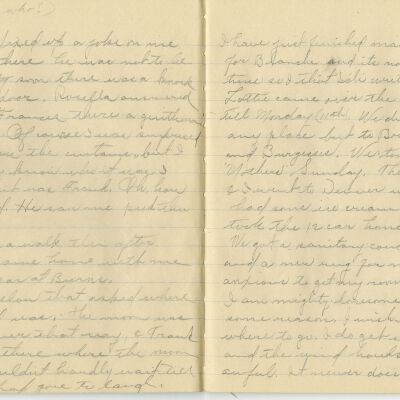 who!)
fixed up a joke on me
there he was not to be
soon there was a knock
door. Rosella answered
Frances there a gentleman
Of course I was surprised
the curtains, but I
know who it was. I
it was Frank. Oh, how
He saw me peek thru
a walk then after
came home with me
car at Burns.
that asked where
I was. The moon was
over that way, & Frank
there where the moon
wouldn't hardly wait till
had gone to laugh.
I have just finished
for Blanche and its no
time so I that I'd write
Lottie came over the
till Monday (11th). We di
any place but to Bo
and Burgess. We to
Mothers' Sunday. Th
& I went to Denver
had some ice cream
took the 12 car home
We got a sanitary couch
and a new rug for m
anxious to get my room
I am mighty lonesome
some reason. I wish
where to go. I do get s
and the wind howls
awful. It never does